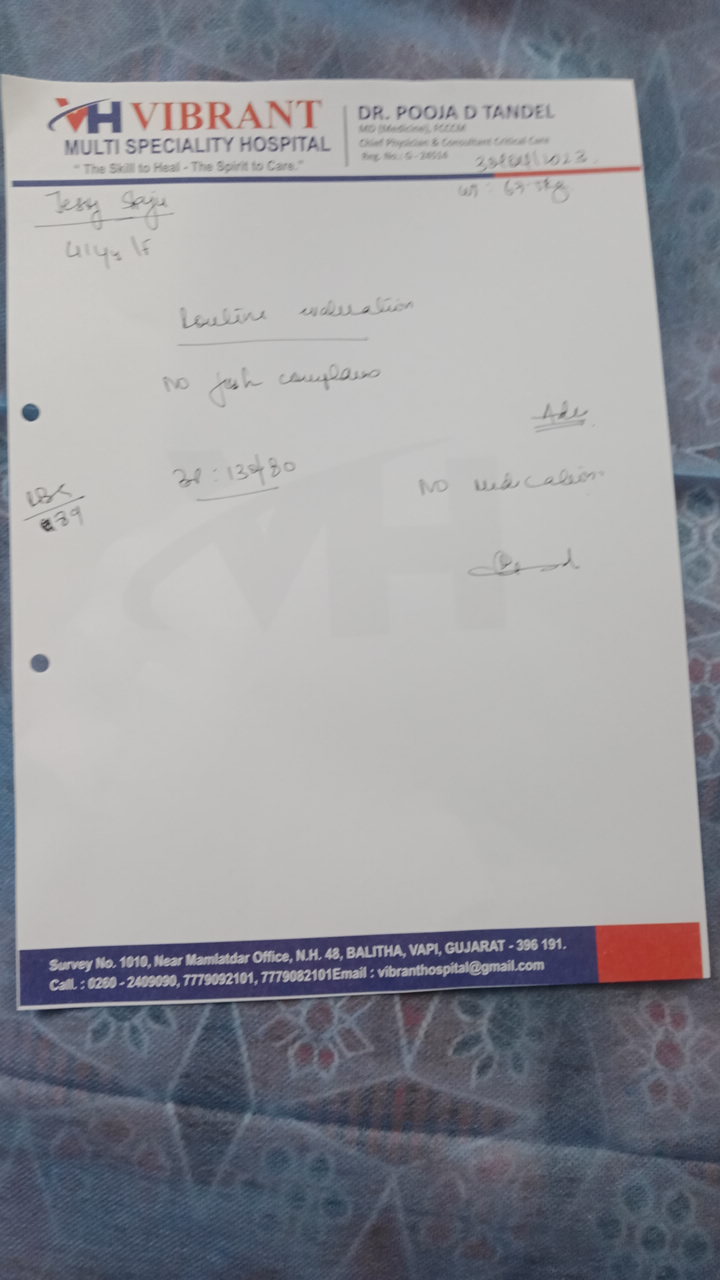 VH VIBRANT
MULTI SPECIALITY HOSPITAL
"The Skill to Heal - The Spirit to Care."
DR. POOJA D TANDEL
MD (Medicine), FCCCM
Chief Physician & Consultant Critical Care
Reg. No.: G - 24514
Jessy Saju
41 Y
Routine evaluation
No
Adv.
BP : 130/80
RBS
89
No medication
Survey No. 1010, Near Mamlatdar Office, N.H. 48, BALITHA, VAPI, GUJARAT - 396 191.
Call. : 0260 - 2409090, 7779092101, 7779082101 Email : vibranthospital@gmail.com